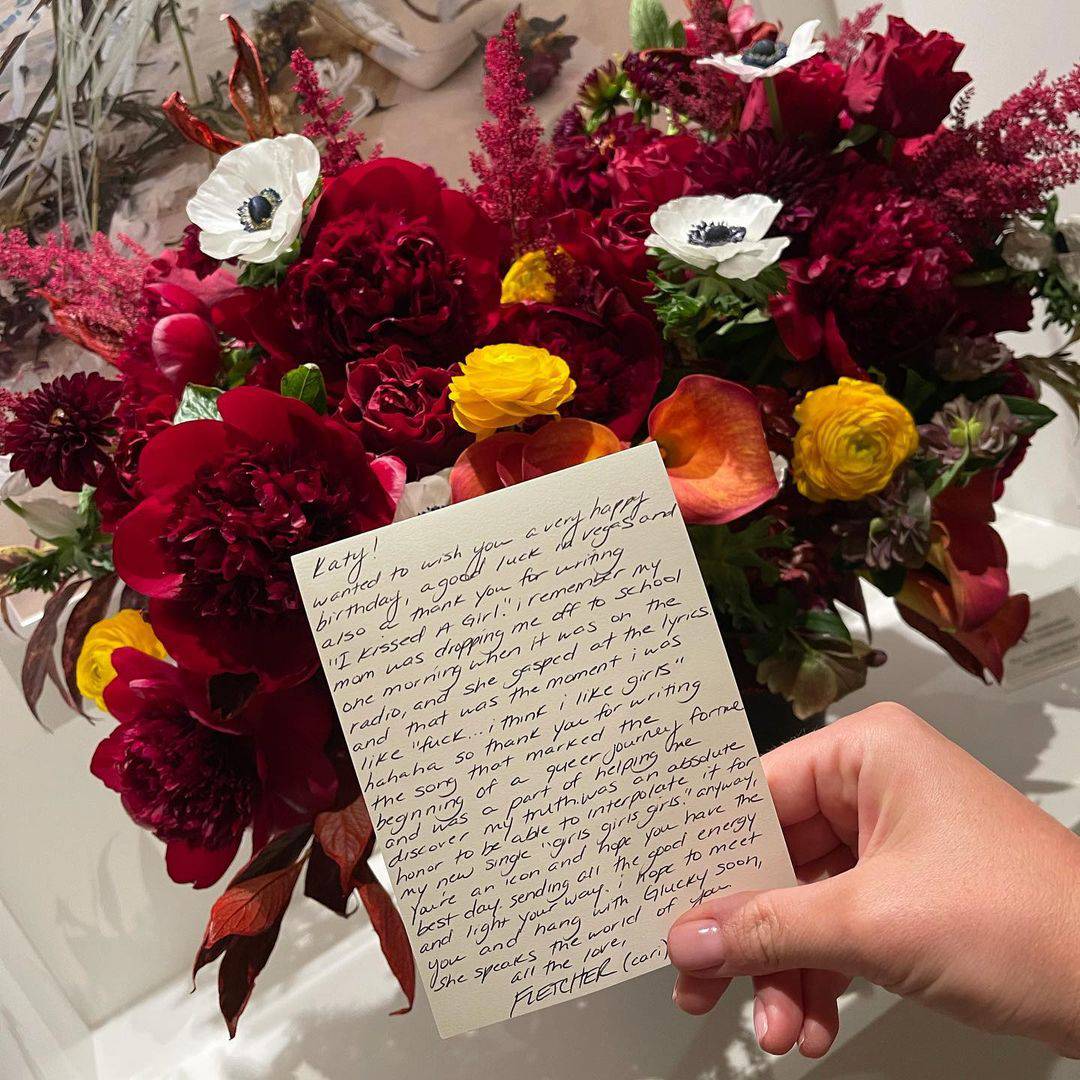 Katy!
wanted to wish you a very happy
birthday, a good luck in vegas and
also a thank you for writing
"I Kissed A Girl." i remember my
mom was dropping me off to school
one morning when it was on the
radio, and she gasped at the lyrics.
and that was the moment i was
like "fuck... i think i like girls"
hahaha so thank you for writing
the song that marked the
beginning of a queer journey for me
and was a part of helping me
discover my truth. was an absolute
honor to be able to interpolate it for
my new single "girls girls girls." anyway,
you're an icon and hope you have the
best day. sending all the good energy
and light your way. i hope to meet
you and hang with Glucky soon,
she speaks the world of you
all the love,
FLETCHER (cari)